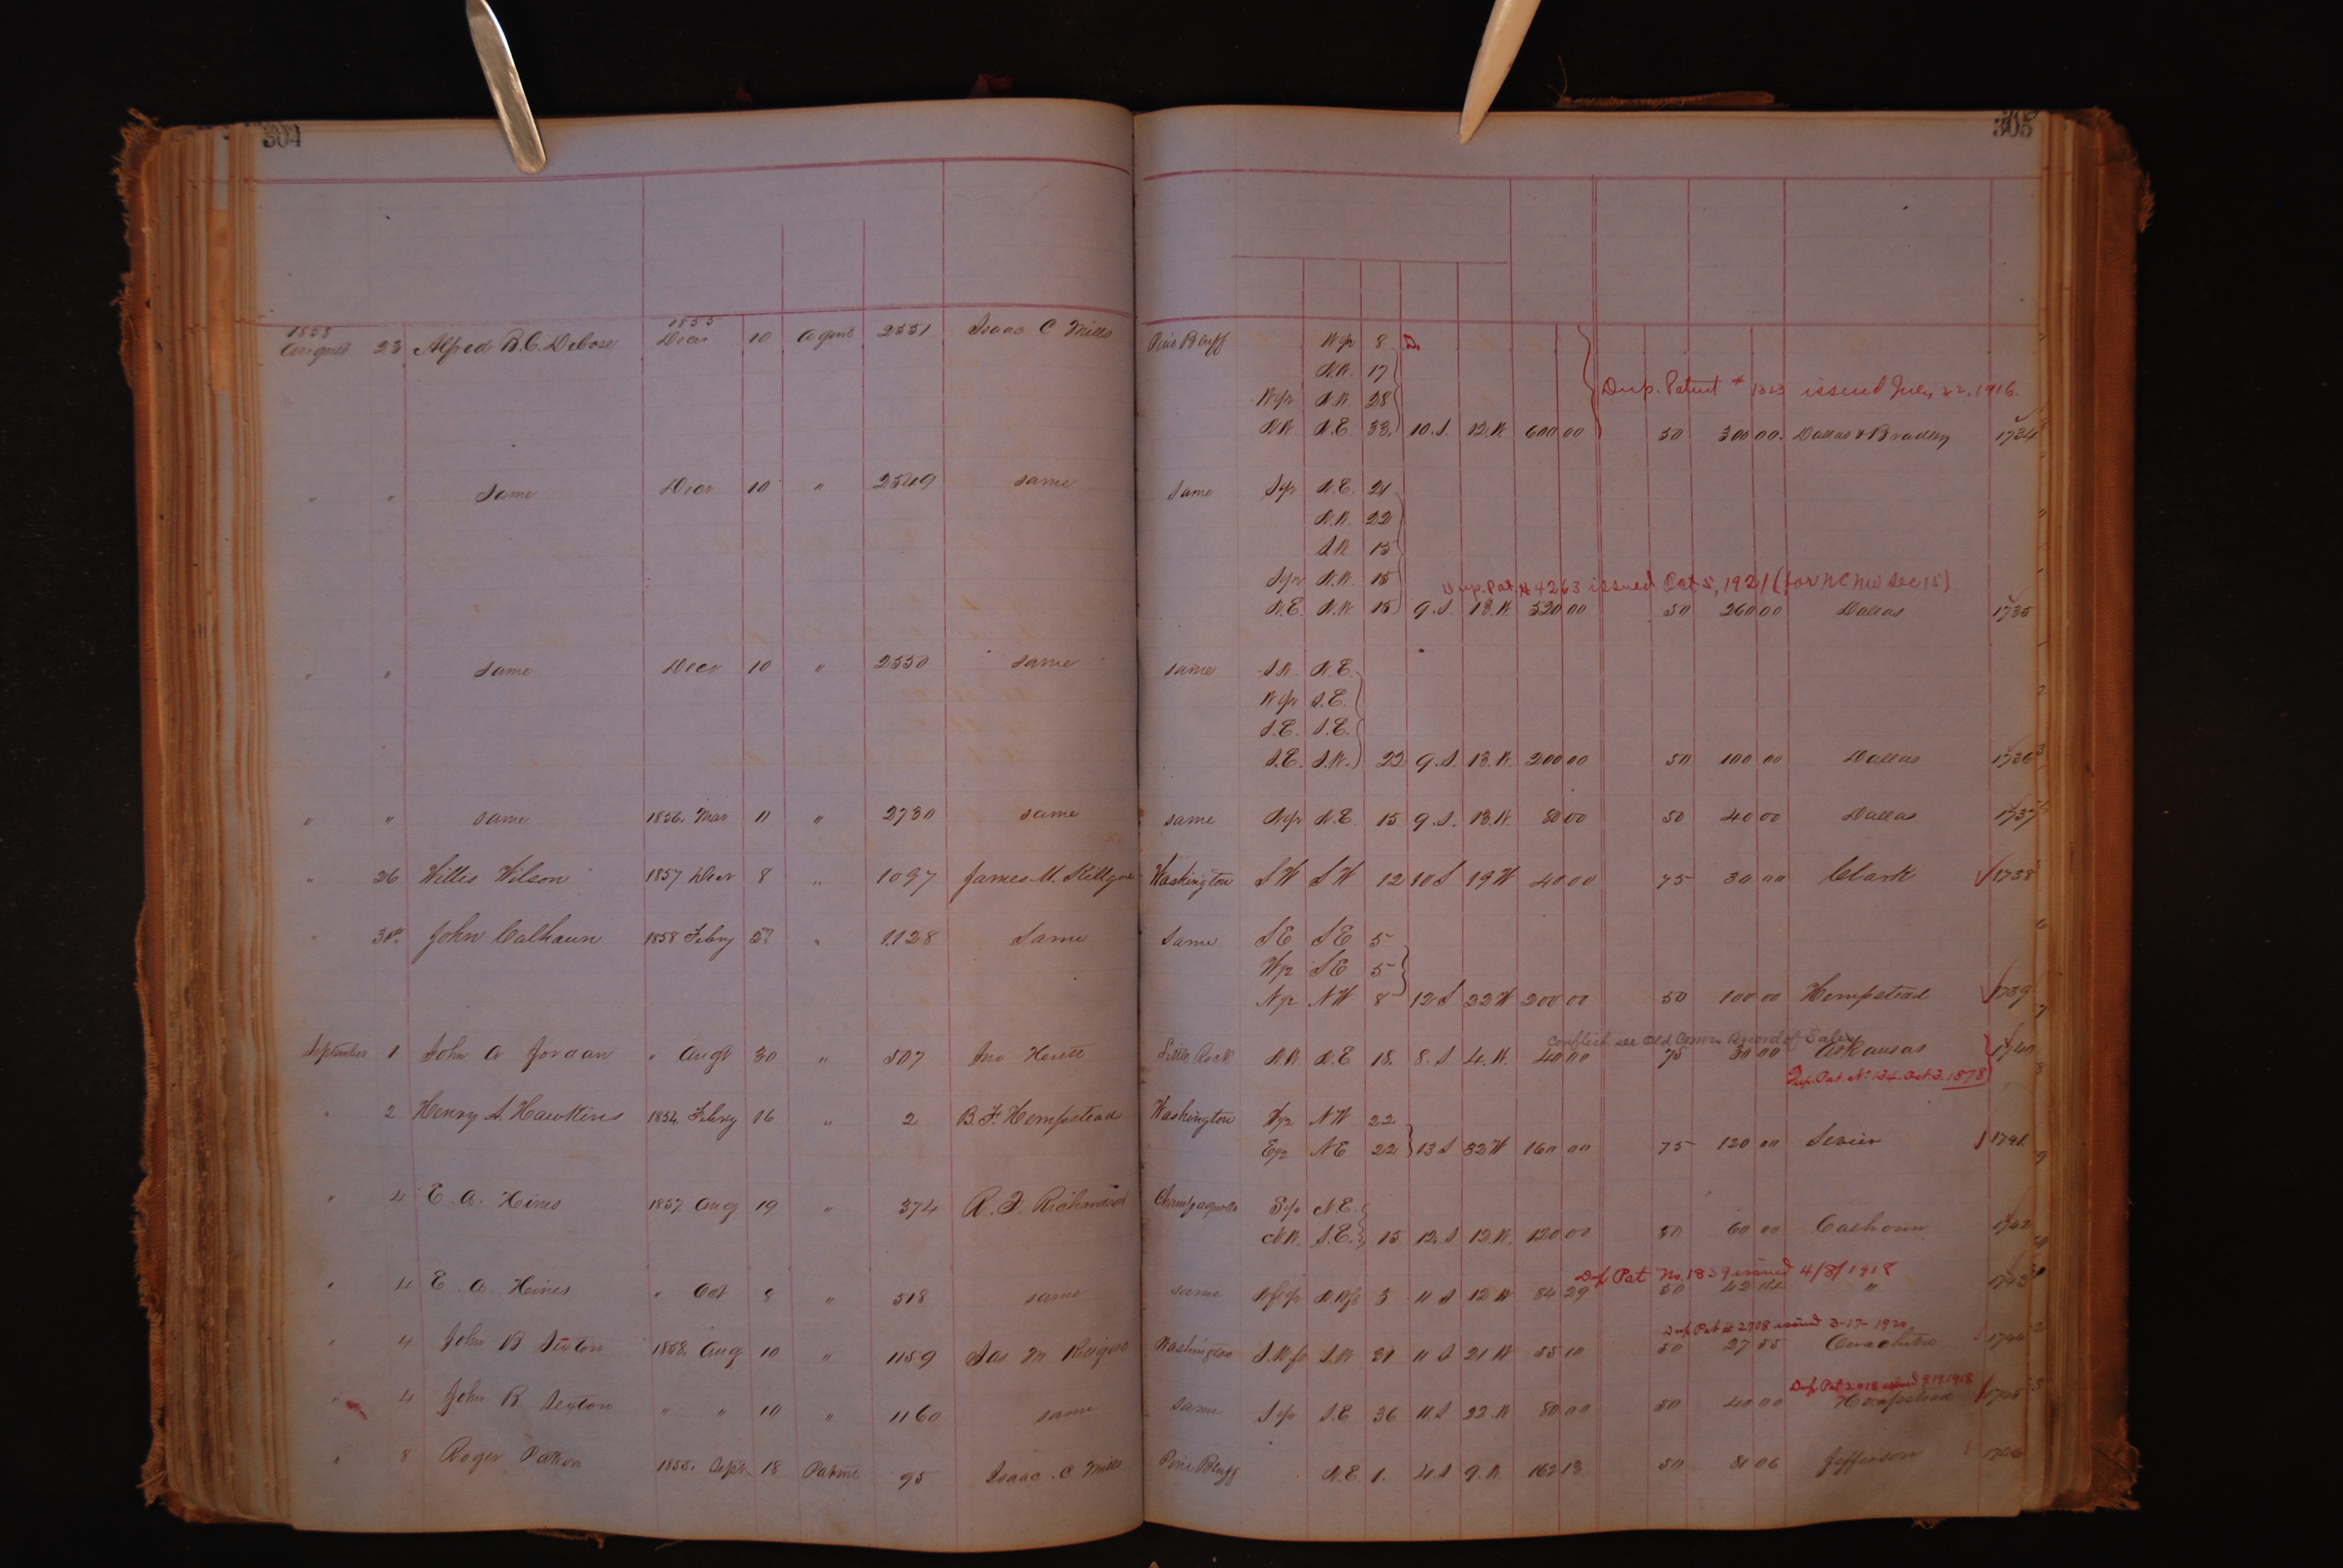 304
305
1858 1855
August 23 Alfred B. C. Debose Decr 10 Agent 2551 Isaac C Mills Pine Bluff W½ 8
N.W. 17
Dup. Patent # 1323 issued July 22, 1916.
W½ N.W. 28
N.W. N.E. 33. 10.S. 12.W. 600 00 50 300 00. Dallas & Bradley 1734
" " Same Decr 10 " 2549 same same S½ N.E. 21
N.W. 22
S.W. 15
S½ N.W. 15
Dup. Pat. # 4263 issued Oct 5, 1921 (for NE NW Sec 15)
N.E. N.W. 15 9.S. 13.W. 520 00 50 260 00 Dallas 1735
" " same Decr 10 " 2550 same same S.W. N.E.
W½ S.E.
S.E. S.E.
S.E. S.W. 22 9.S. 13.W. 200 00 50 100 00 Dallas 1736
" " same 1856. Mar 11 " 2730 same same N½ N.E. 15 9.S. 13.W. 80 00 50 40 00 Dallas 1737
" 26 Willis Wilson 1857 Decr 8 " 1097 James M. Washington SW SW 12 10 S 19 W 40 00 75 30 00 Clark 1738
" 30th John Calhoun 1858 Febry " 1128 Same Same SE SE 5
W½ SE 5
N½ NW 8 12 S 22 W 200 00 50 100 00 Hempstead 1739
Conflict see Old Record of Sales
September 1 John A Jordan " Augt 30 " 507 Jno Little Rock N.W. N.E 18. 8.S 4.W. 40 00 75 30 00 Arkansas 1740
Dup. Pat. No 134 Oct. 3. 1878
" 2 Henry A. Hawkins 1854 Febry 16 " 2 B. F. Hempstead Washington W½ NW 22
E½ NE 22 13 S 32 W 160 00 75 120 00 Sevier 1741
" 4 E. A. Hines 1857. Aug 19 " 374 R. F. Richardson Champagnolle S½ N.E.
N.W. S.E. 15 12.S 12.W. 120 00 50 60 00 Calhoun 1742
Dup Pat No. 1839 issued 4/8/1918
" 4 E. A. Hines " Oct 8 " 518 same same 3 11 S 12 W 84 29 50 42 14 " 1743
Dup Pat # 2708 issued 3-17-1920
" 4 John B Sexton 1858. Aug 10 " 1159 Jas M Washington S.W 31 11 S 21 W 55 10 50 27 55 Ouachita 1744
Dup Pat 2018 issued 9 19 1918
" 4 John B Sexton " " 10 " 1160 same same S½ S.E 36 11.S 22.W 80 00 50 40 00 Hempstead 1745
" 8 Roger 1855. Sept 18 Patent 95 Isaac. C Mills Pine Bluff N.E. 1. 4.S 9.W. 162 13 50 81 06 Jefferson 1746